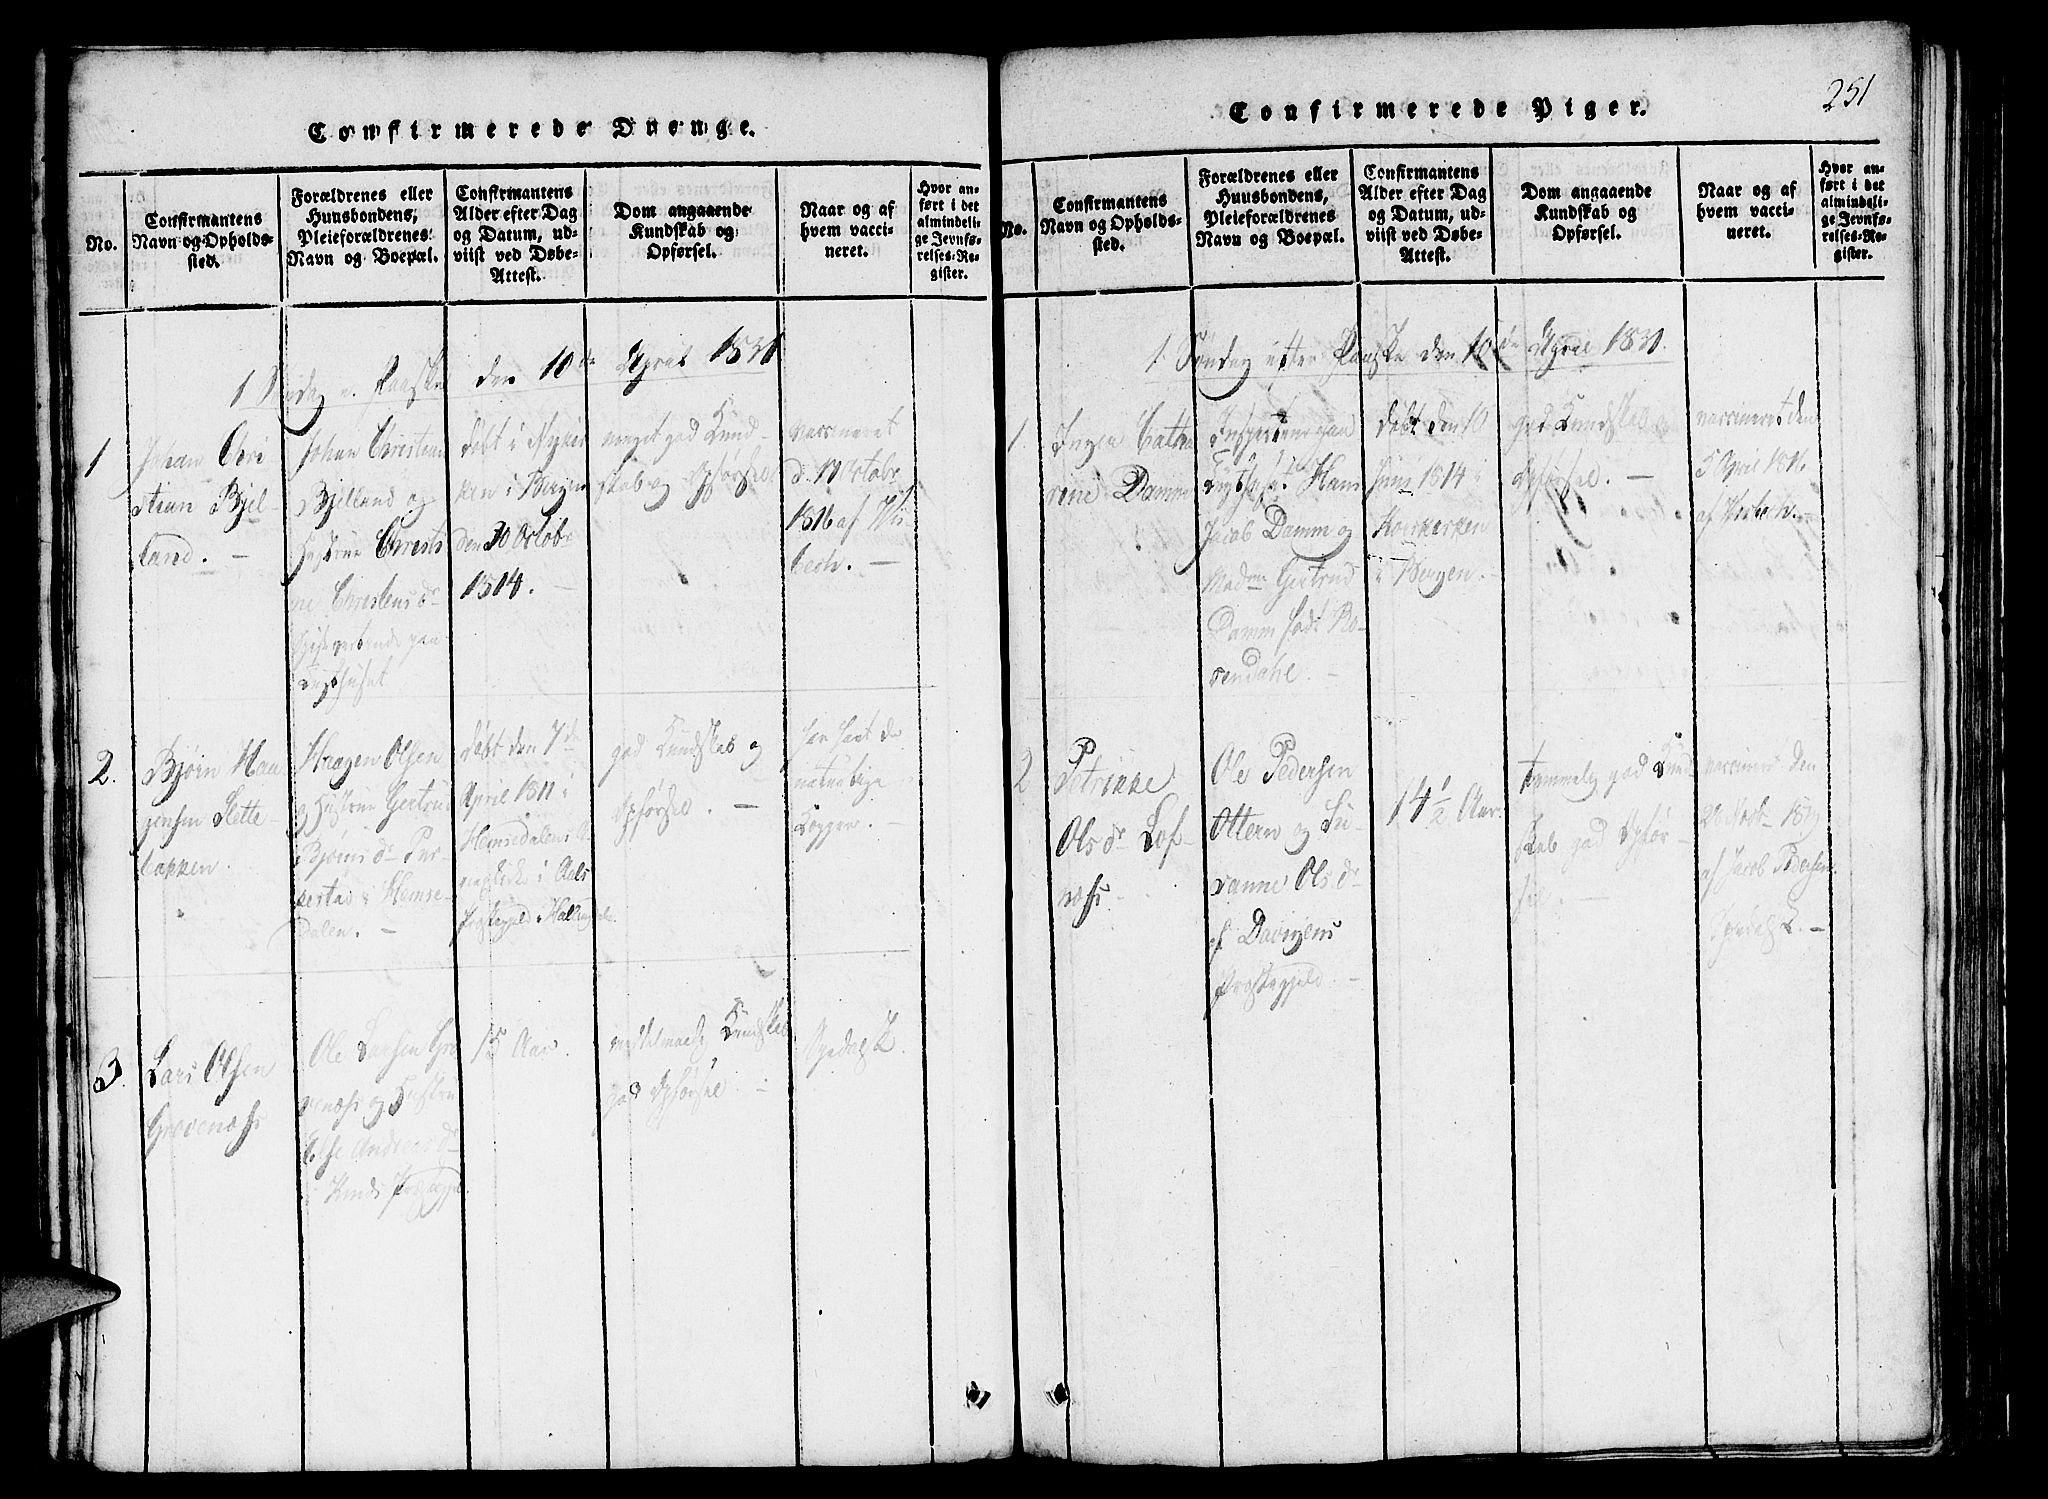 251
Confirmerede Drenge.
No.
Confirmantens
Navn og Opholds-
sted.
Forældrenes eller
Huusbondens,
Pleieforældrenes
Navn og Boepæl.
Confirmantens
Alder efter Dag
og Datum, ud-
viist ved Døbe-
Attest.
Dom angaaende
Kundskab og
Opførsel.
Naar og af
hvem vacci-
neret.
Hvor an-
ført i det
almindeli-
ge Jevnfø-
relses-Re-
gister.
1 Søndag e. Paaske den 10de April 1831
1
Johan Chri
stian Bjel-
land. -
Johan Christian
Bjelland og
Hustrue Christi
ne Christens dr
Tugthuset
døbt i Nykir
ken i Bergen
den 30 Octobr
1814. -
meget god Kund-
skab og Opførsel
vaccineret
d. 17 Octobr
1816 af Wis
bech. -
2.
Bjørn Haa
gensen Slette
bakken.
Haagen Olsen
og Hustrue Gertrud
Bjørns dr
Hemse-
dalen. -
døbt den 7de
April 1811 i
Hemsedalens A
i Aals
Præstegjeld Hallingdal.
god Kundskab og
Opførsel. -
har havt de
naturlige
Kopper. -
3.
Lars Olsen
Grovenæss
Ole Larsen Gro
venæss og Hustrue
Else Andreas dr
i Kinds Præstegjeld
15 Aar.
middelmaadig Kundskab
god Opførsel -
Spedalsk.
Confirmerede Piger.
No.
Confirmantens
Navn og Opholds-
sted.
Forældrenes eller
Huusbondens,
Pleieforældrenes
Navn og Boepæl.
Confirmantens
Alder efter Dag
og Datum, ud-
viist ved Døbe-
Attest.
Dom angaaende
Kundskab og
Opførsel.
Naar og af
hvem vacci-
neret.
Hvor an-
ført i det
almindeli-
ge Jevnfø-
relses-Re-
gister.
1. Søndag efter Paaske den 10de April 1831.
1.
Inger Catha
rine Damm
Inspecteur paa
Tugthuset Hans
Jacob Damm og
Madme Gertrud
Damm født Ro-
sendahl. -
døbt den 10
Juni 1814 i
Korskirken
i Bergen. -
god Kundskab og
Opførsel. -
vaccineret den
5 April 1816
af Wisbech. -
2
Petrikke
Ols dr Lof-
næss -
Ole Pedersen
Ottern og Su-
sanne Ols dr
af Davigens
Præstegjeld -
14 1/2 Aar.
temmelig god Kund
skab god Opfør-
sel. -
vaccineret den
af Jacob Pedersen.
Spedalsk. -